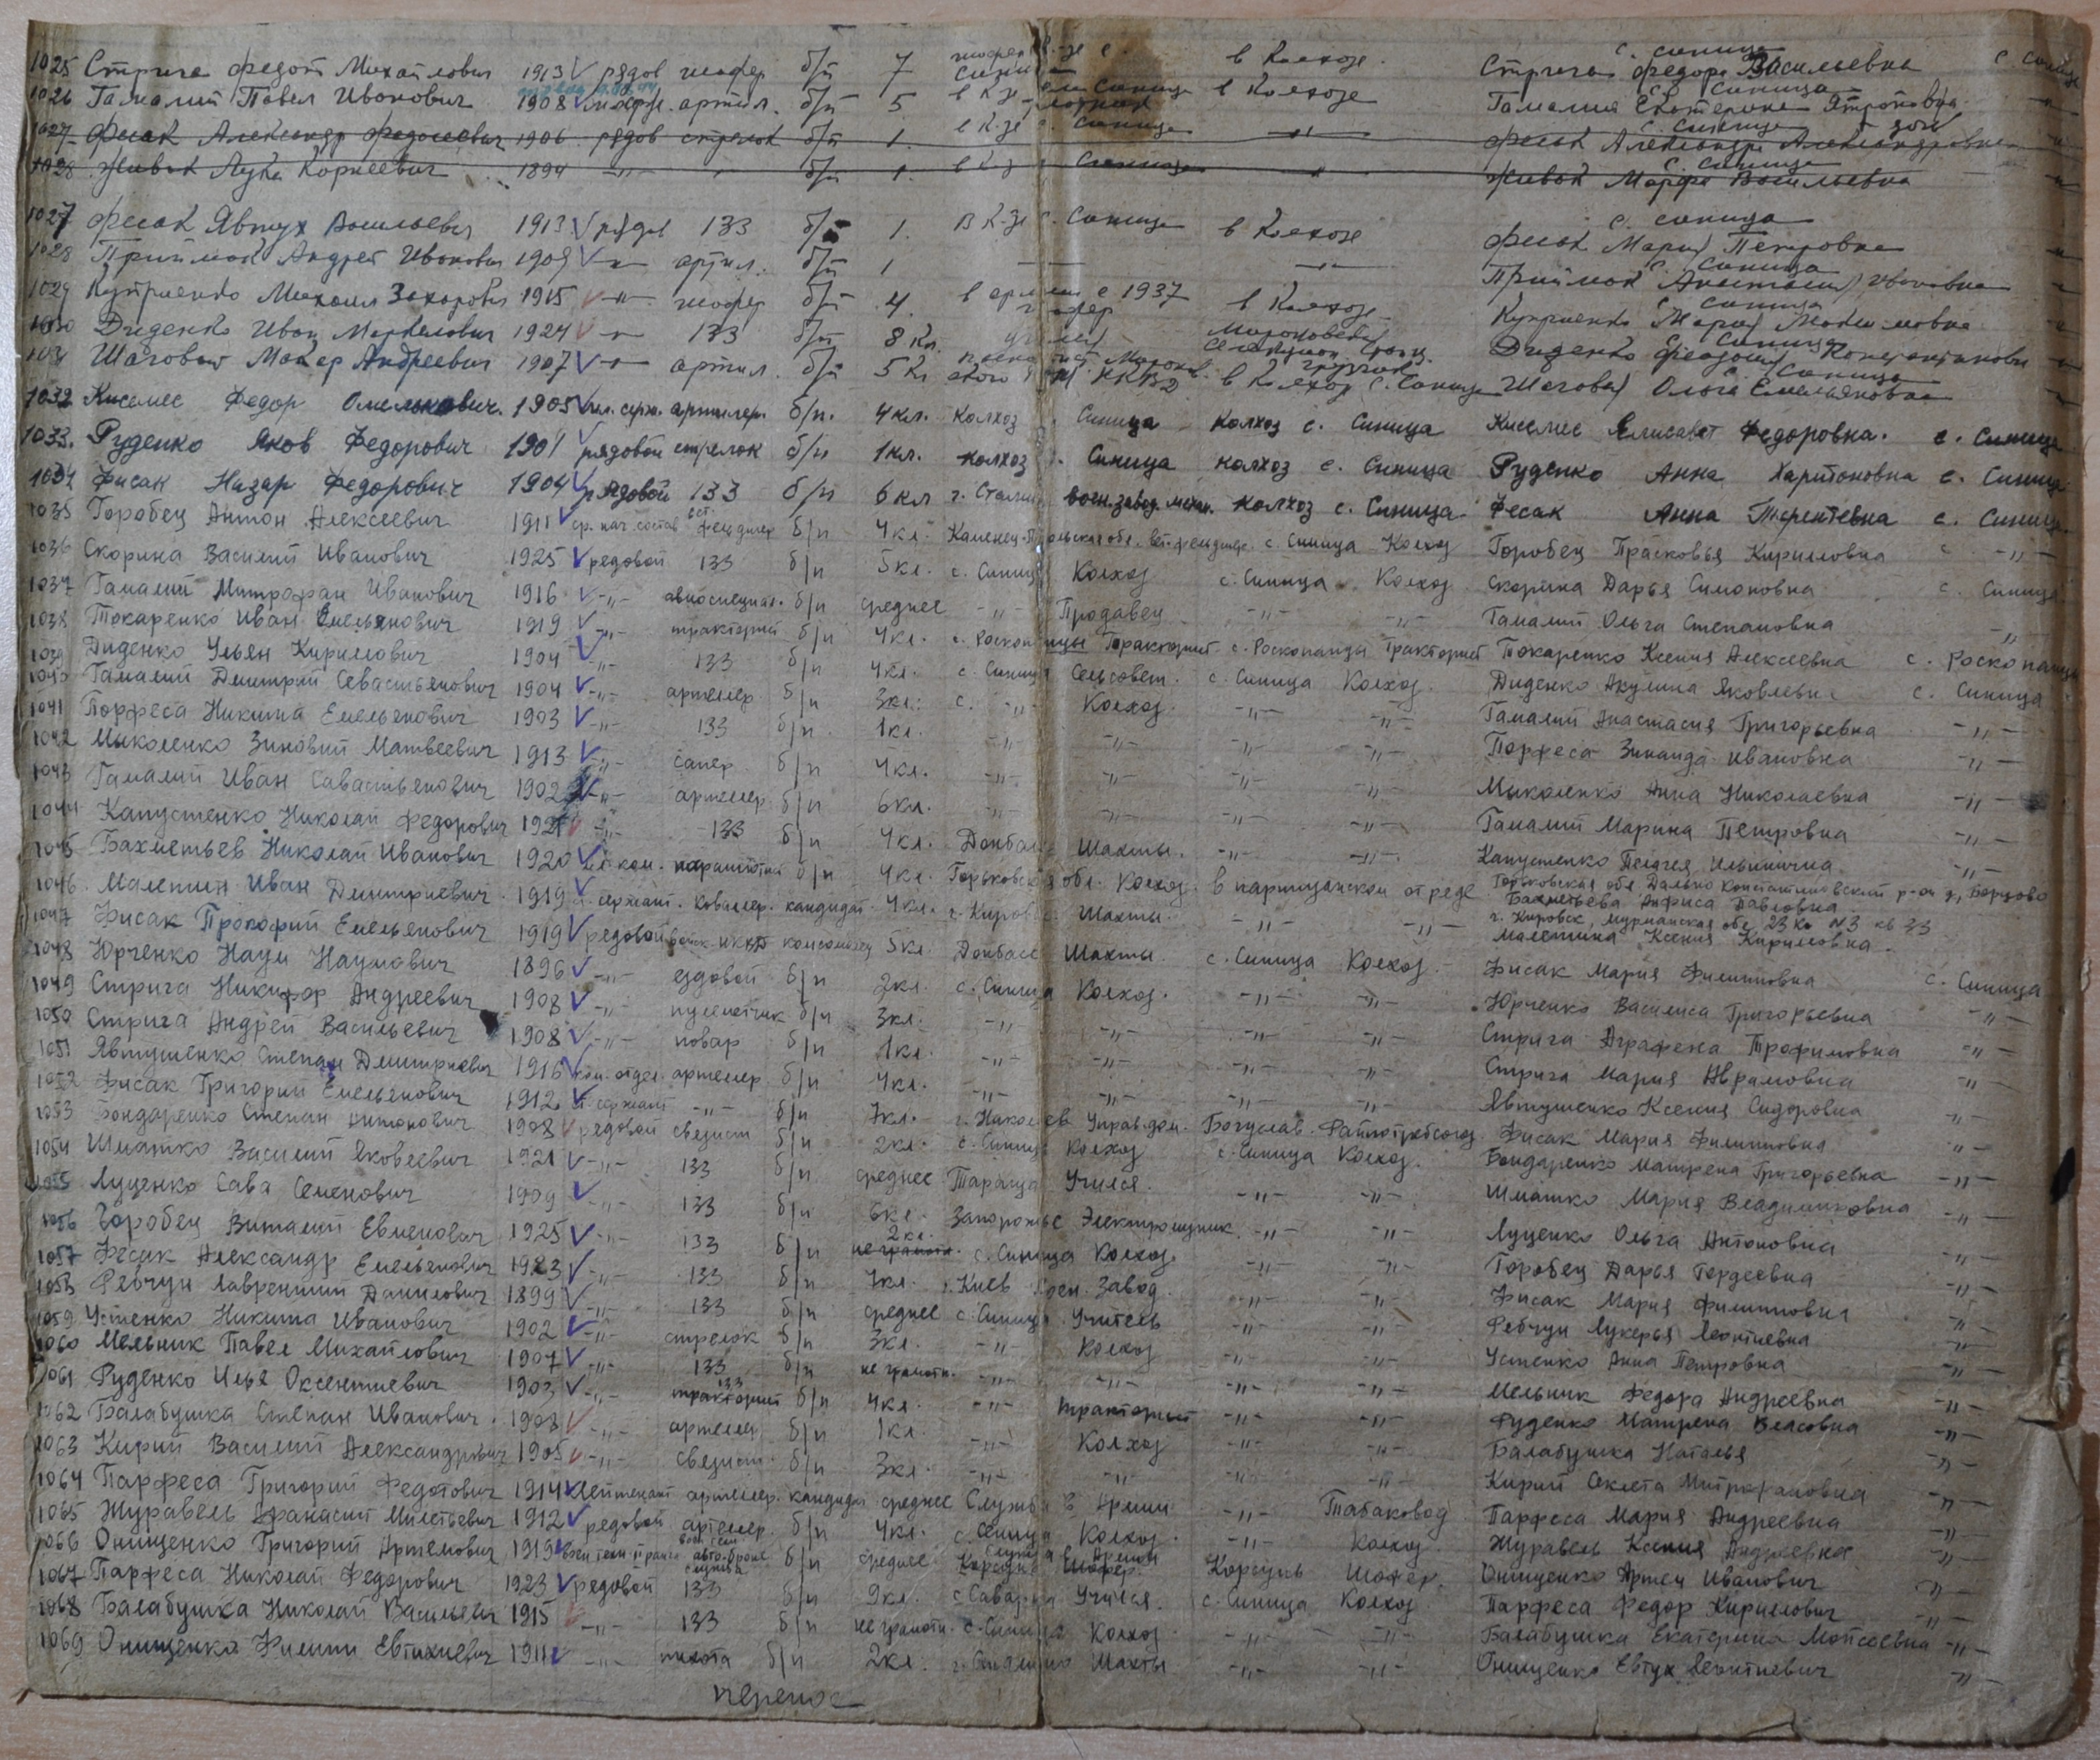 1025 Стрига Федот Михайлович 1913 рядов шофер б/п 7 в Колхозе с. Синица Стрига Федора Васильевна
1026 Гамалий Павел Иванович 1908 артил. б/п 5 в Колхозе с. Синица Гамалия Екатерина
1027 Фесак Александр Федосеевич 1906 рядов стрелок б/п 1. в К-зе с. Синица -"- с. Синица Фесак Александра Александровна
1028 Живак Лука Корнеевич 1894 -"- б/п 1. в К-зе Синица -"- с. Синица Живак Марфа Васильевна
1027 Фесак Явтух Васильевич 1913 рядов 133 б/п 1. в К-зе с. Синица в Колхозе с. Синица Фесак Мария Петровна
1028 Приймак Андрей Иванович 1909 -"- артил. б/п 1 -"- с. Синица Приймак Анастасия Ивановна
1029 Куприенко Михаил Захарович 1915 -"- шофер б/п 4. в армии с 1937 в Колхозе с. Синица Куприенко Мария
1030 Диденко Иван Маркелович 1924 -"- 133 б/п 8 кл. с. Синица Диденко Феодосия Константиновн
1031 Шаговый Макар Андреевич 1907 -"- артил. б/п 5 кл НКВД в Колхоз с. Синица с. Синица Шаговая Ольга Емельяновна
1032 Киселис Федор Омелькович. 1905 мл. серж. артилер. б/п. 4кл. Колхоз с. Синица Колхоз с. Синица Киселис Елисавет Федоровна. с. Синица
1033. Руденко Яков Федорович 1901 рядовой стрелок б/п 1кл. колхоз с. Синица колхоз с. Синица Руденко Анна Харитоновна с. Синица
1034 Фисак Назар Федорович 1904 рядовой 133 б/п 6 кл г. Сталин воен. завод. механ. колхоз с. Синица Фесак Анна Терентевна с. Синица
1035 Горобец Антон Алексеевич 1911 ср. нач. состав вет. фельдшер б/п 4кл. Каменец-Подольская обл. вет. фельдшер. с. Синица Колхоз Горобец Прасковья Кирилловна с -"-
1036 Скорина Василий Иванович 1925 редовой 133 б/п 5кл. с. Синица Колхоз с. Синица Колхоз Скорина Дарья Симоновна с. Синица
1037 Гамалий Митрофан Иванович 1916 -"- авиоспециал. б/п среднее -"- Продавец -"- -"- Гамалий Ольга Степановна -"-
1038 Токаренко Иван Емельянович 1919 -"- тракторист б/п 4кл. с. Роскопанцы Тракторист с. Роскопанцы Тракторист Токаренко Ксения Алексеевна с. Роскопанцы
1039 Диденко Ульян Кириллович 1904 -"- 133 б/п 4кл. с. Синица Сельсовет. с. Синица Колхоз Диденко Акулина Яковлевна с. Синица
1040 Гамалий Дмитрий Севастьянович 1904 -"- артелер б/п 3кл. с. -"- Колхоз. -"- -"- Гамалий Анастасия Григорьевна -"-
1041 Порфеса Никита Емельянович 1903 -"- 133 б/п 1кл. -"- -"- -"- -"- Порфеса Зинаида Ивановна -"-
1042 Миколенко Зиновий Матвеевич 1913 -"- сапер б/п 4кл. -"- -"- -"- -"- Миколенко Анна Николаевна -"-
1043 Гамалий Иван Савастьянович 1902 -"- артелер б/п 6кл. -"- -"- -"- -"- Гамалий Марина Петровна -"-
1044 Капустенко Николай Федорович -"- 133 б/п 4кл. Донбасс Шахты. -"- -"- Капустенко Пелагея Ильинична -"-
1045 Бахметьев Николай Иванович 1920 парашютист б/п 4кл. Горьковская обл. Колхоз. в партизанском отреде Горьковская обл. Дально Константиновский р-он д. Борцово Бахметьева Анфиса Павловна
1046. Малетин Иван Димитриевич. 1919 сержант. Кавалер. кандидат 4кл. г. Кировск Шахты. -"- -"- г. Кировск, Мурманская обл 23 км N3 кв 33 Малетина Ксения Кирилловна
1047 Фисак Прокофий Емельянович 1919 редовой войск НКВД комсомолец 5кл Донбасс Шахты. с. Синица Колхоз. Фисак Мария Филиповна с. Синица
1048 Юрченко Наум Наумович 1896 -"- ездовой б/п 2кл. с. Синица Колхоз. -"- -"- Юрченко Василиса Григорьевна -"-
1049 Стрига Никифор Андреевич 1908 -"- пулеметчик б/п 3кл. -"- -"- -"- -"- Стрига Аграфена Трофимовна -"-
1050 Стрига Андрей Васильевич 1908 -"- повар б/п 1кл. -"- -"- -"- -"- Стрига Мария Аврамовна -"-
1051 Явтушенко Степан Дмитриевич 1916 ком. отдел. артелер б/п 4кл. -"- -"- -"- -"- Явтушенко Ксения Сидоровна -"-
1052 Фисак Григорий Емельянович 1912 ст. сержант -"- б/п 7кл. г. Николаев Управ.дом. Богуслав. Райпотребсоюз Фисак Мария Филиповна -"-
1053 Бондаренко Степан Антонович 1908 редовой связист б/п 2кл. с. Синица Колхоз с. Синица Колхоз. Бондаренко Матрена Григорьевна -"-
1054 Шматко Василий Яковлевич 1921 -"- 133 б/п среднее Тараща Учился. -"- -"- Шматко Мария Владимировна -"-
1055 Луценко Сава Семенович 1909 -"- 133 б/п 6кл. Запорожье Электромщик -"- -"- Луценко Ольга Антоновна -"-
1056 Горобец Виталий Евменович 1925 -"- 133 б/п не грамотн. 2кл. с. Синица Колхоз. -"- -"- Горобец Дарья Гордеевна -"-
1057 Фесак Александр Емельянович 1923 -"- 133 б/п 7кл. г. Киев Воен. Завод. -"- -"- Фисак Мария Филиповна -"-
1058 Ребчун Лаврентий Данилович 1899 -"- 133 б/п среднее с. Синица Учитель -"- -"- Ребчун Лукерья Леонтиевна -"-
1059 Устенко Никита Иванович 1902 -"- стрелок б/п 3кл. -"- Колхоз -"- -"- Устенко Анна Петровна -"-
1060 Мельник Павел Михайлович 1907 -"- 133 б/п не грамотн. -"- -"- -"- -"- Мельник Федора Андреевна -"-
1061 Руденко Илья Оксентиевич 1903 -"- 133 тракторист б/п 4кл. -"- тракторист -"- -"- Руденко Матрена Власовна -"-
1062 Балабушка Степан Иванович. 1908 -"- артелер б/п 1кл. -"- Колхоз -"- -"- Балабушка Наталья -"-
1063 Кирий Василий Александрович 1905 -"- связист. б/п 3кл. -"- -"- -"- -"- Кирий Секлета Митрофановна -"-
1064 Парфеса Григорий Федотович 1914 Лейтенант артелер. кандидат среднее Служба в Армии -"- Табаковод Парфеса Мария Андреевна -"-
1065 Журавель Афанасий Милетьевич 1912 редовой артелер. б/п 4кл. с. Синица Колхоз. -"- Колхоз. Журавель Ксения Андреевна -"-
1066 Онищенко Григорий Артемович 1919 б/п среднее Корсунь Шофер. Корсунь Шофер. Онищенко Артем Иванович -"-
1067 Парфеса Николай Федорович 1923 редовой 133 б/п 9кл. с. Саварка Учился. с. Синица Колхоз Парфеса Федор Кириллович -"-
1068 Балабушка Николай Васильевич 1915 -"- 133 б/п не грамотн. с. Синица Колхоз -"- -"- Балабушка Екатерина Мойсеевна -"-
1069 Онищенко Филипп Евтихиевич 1911 -"- пихота б/п 2кл. г. Сталино Шахты -"- -"- Онищенко Евтух Леонтиевич -"-
перенос